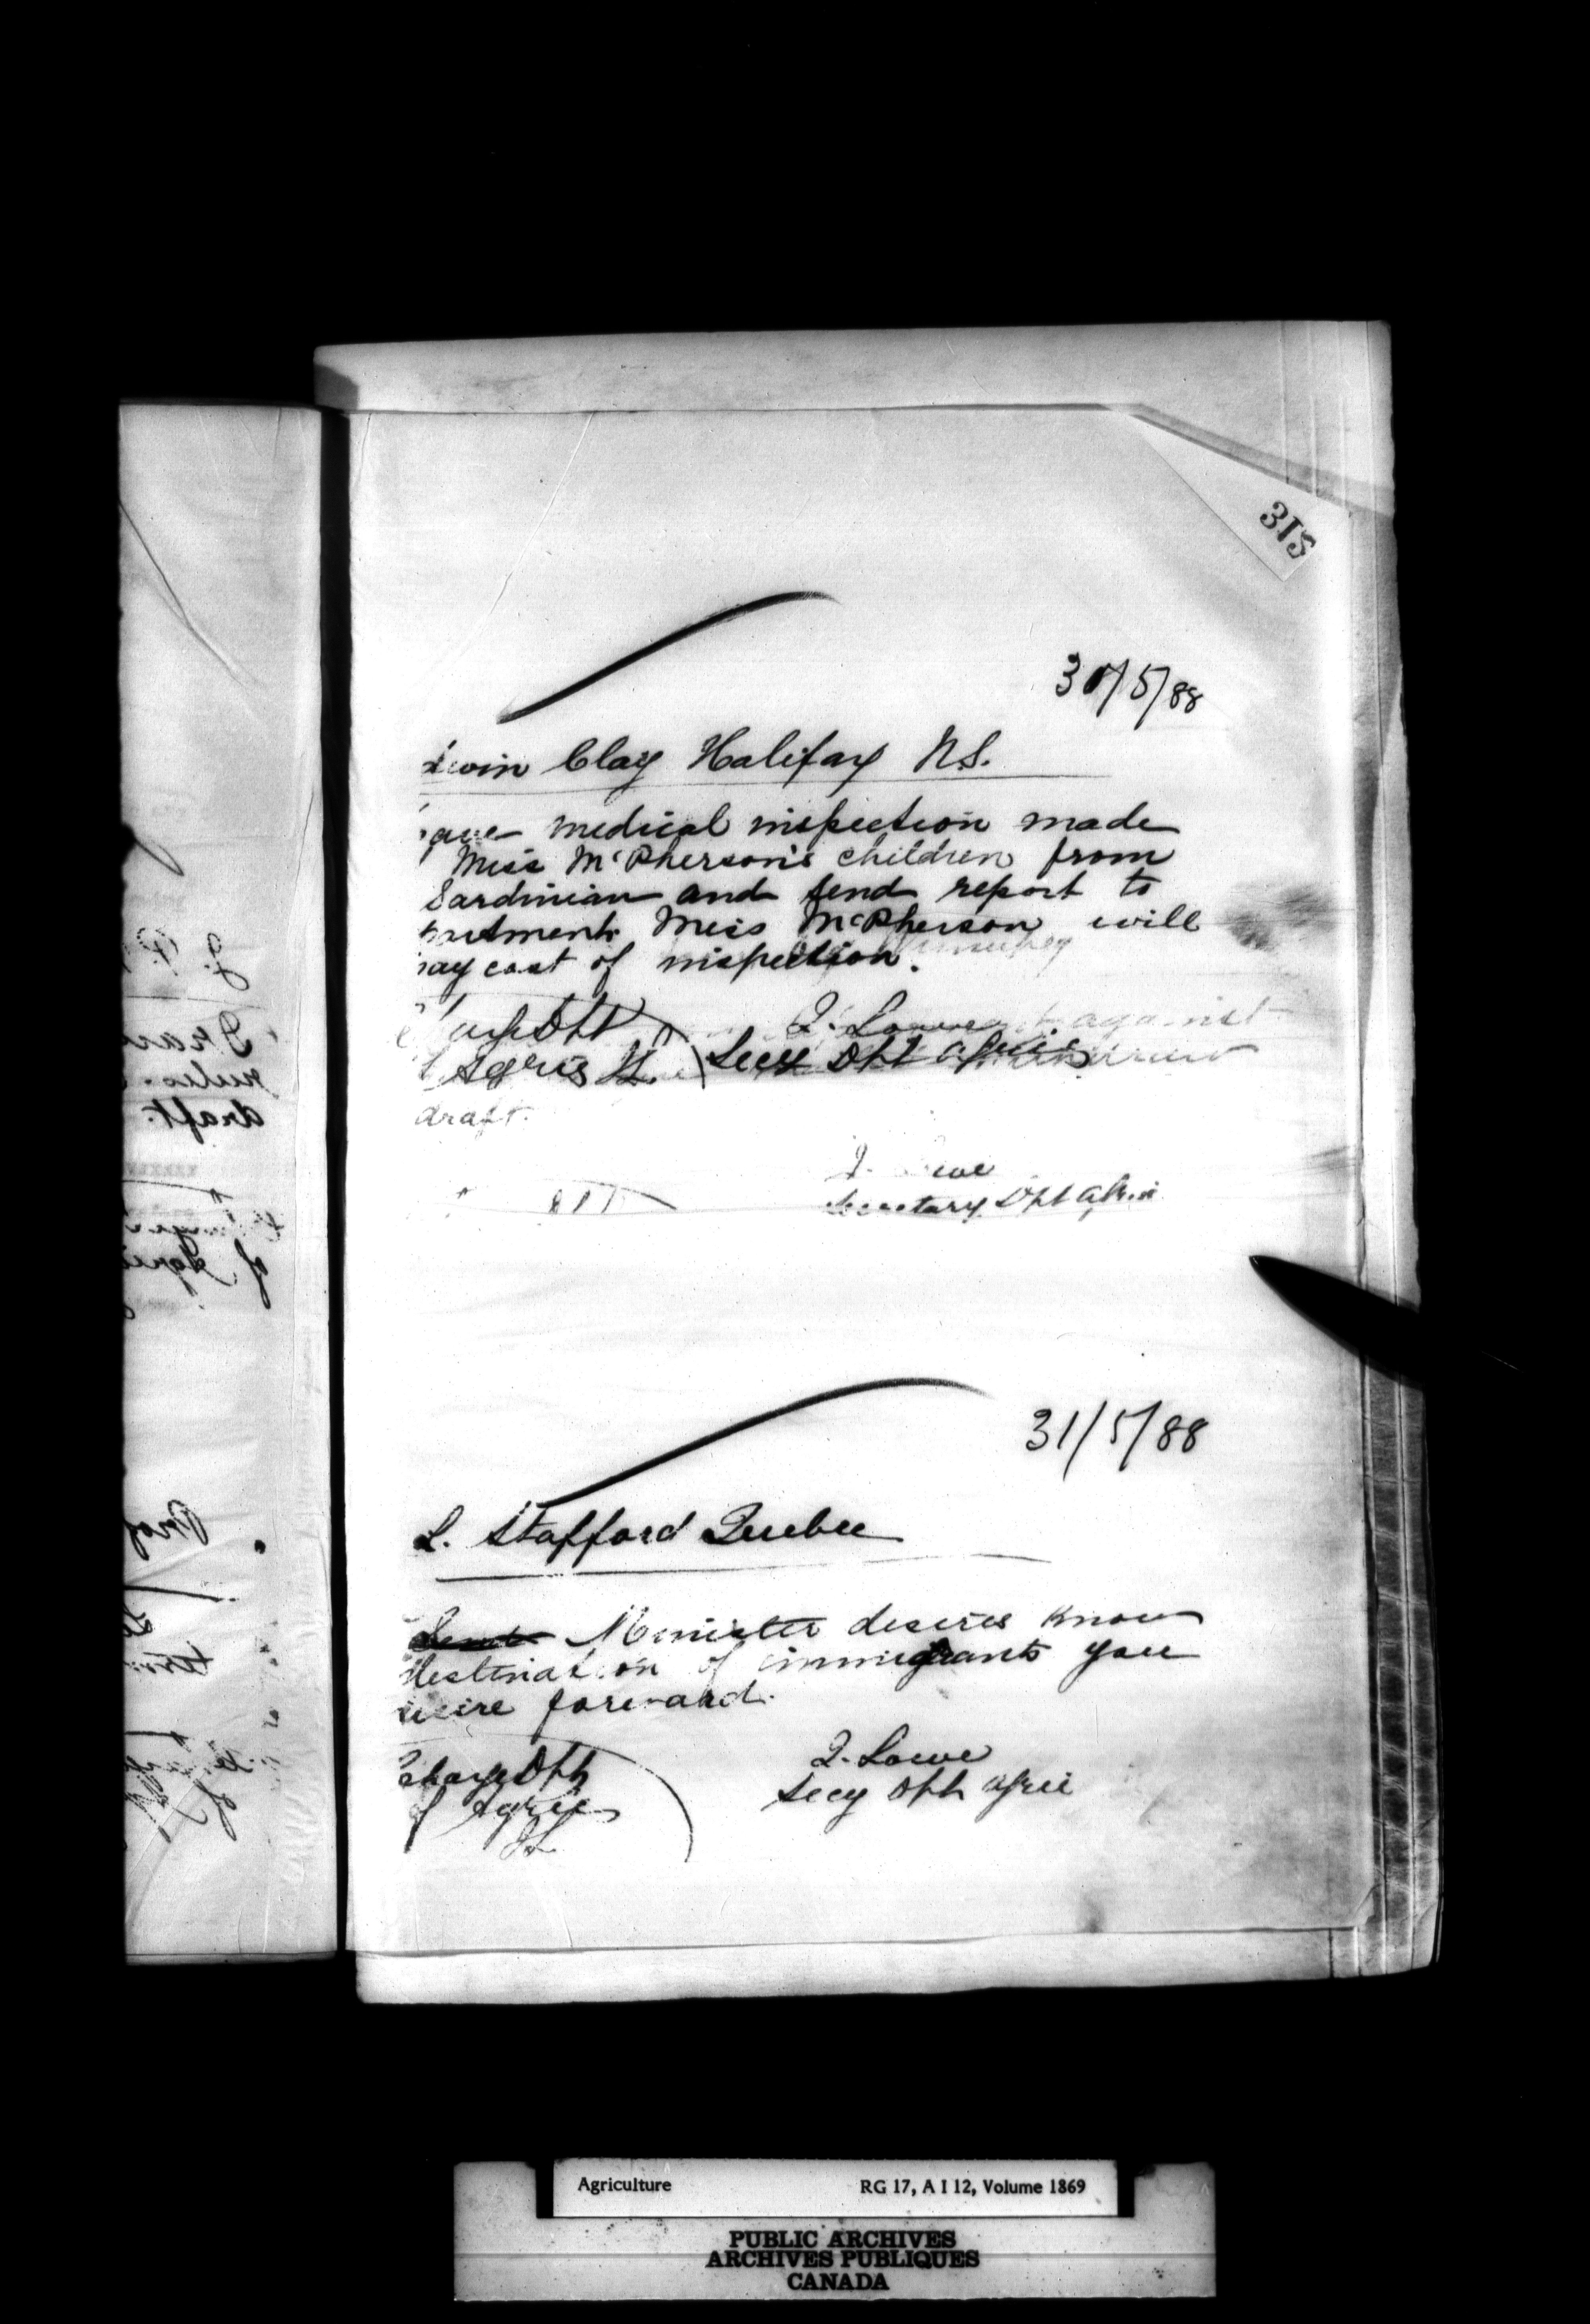 315
30/5/88
dwin Clay Halifax N.S.
ave medical inspection made
Miss McPherson's children from
Sardinian and send report to
partment. Miss McPherson will
pay cost of inspection.
Charge Dpt
of Agric JL.
J. Lowe
Secy Dpt Agric
against
draft.
J. Lowe
Secretary Dpt Agric
31/5/88
L. Stafford Quebec
Send Minister desires know
destination of immigrants you
wire forward.
Charge Dpt
of Agric
JL
J. Lowe
Secy Dpt Agric
draft.
Agriculture RG 17, A I 12, Volume 1869
PUBLIC ARCHIVES
ARCHIVES PUBLIQUES
CANADA